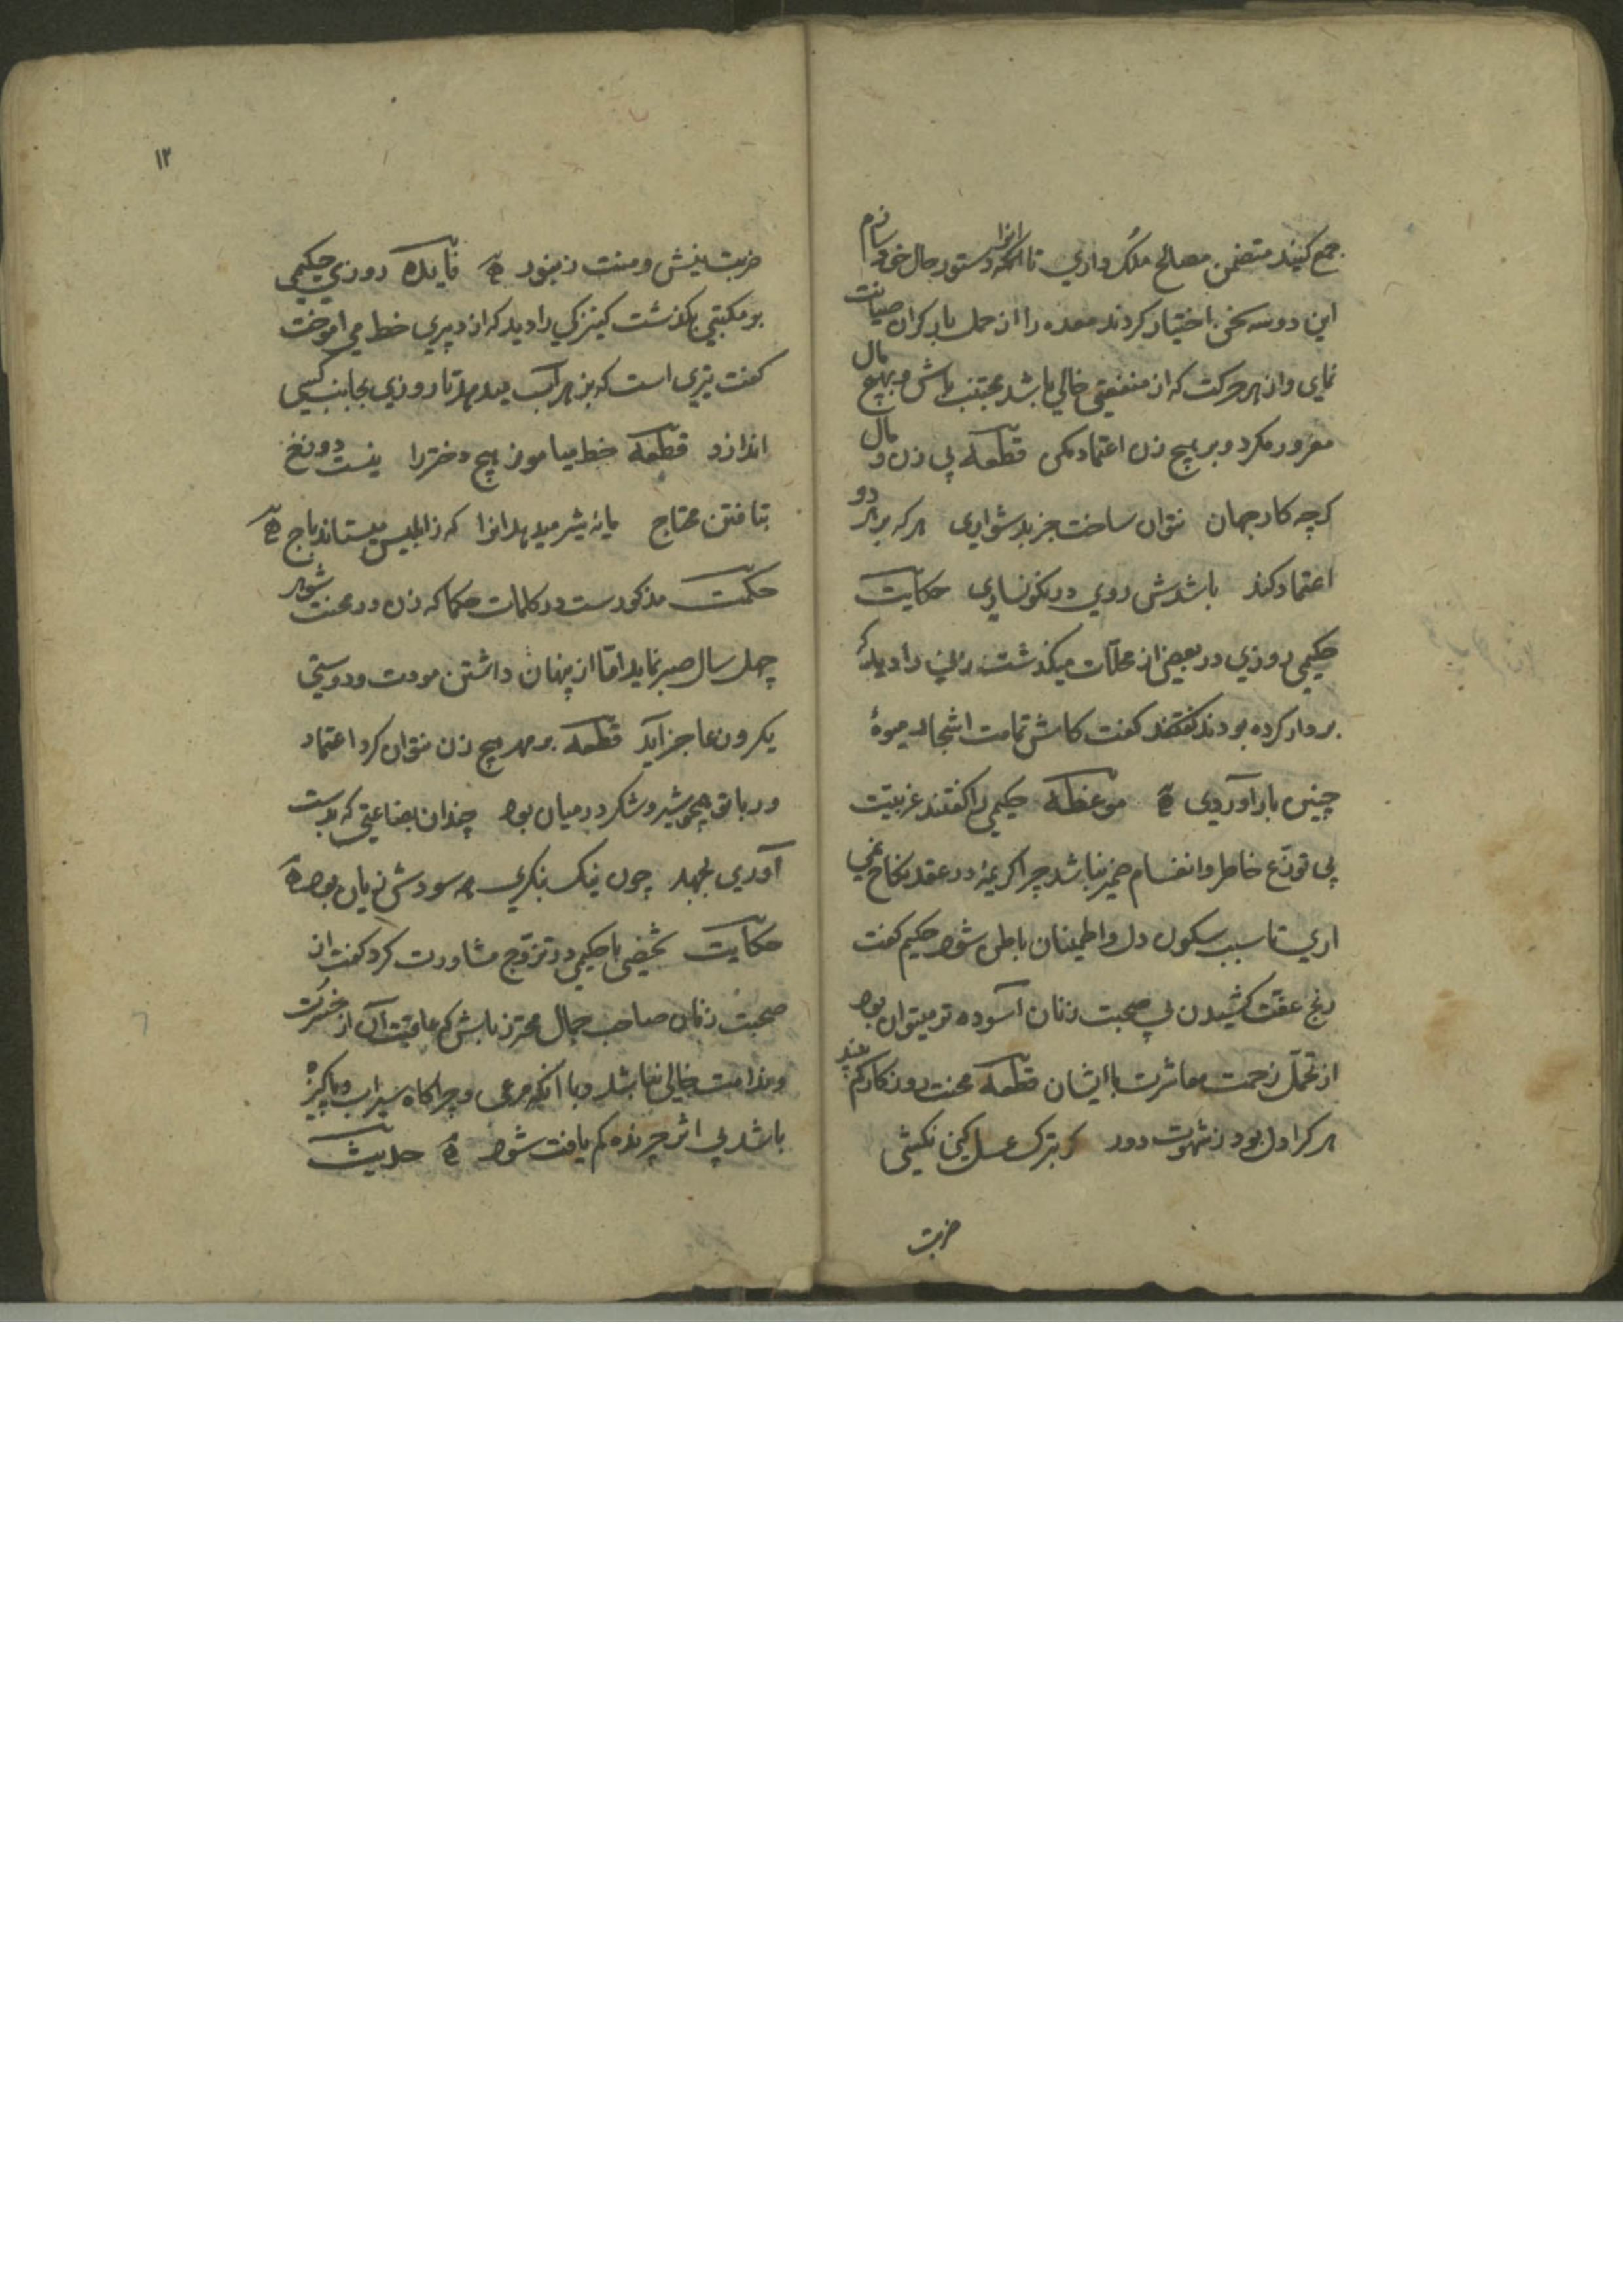 جمع کنید متضمن مصالح ملک داری تا انرا دستور حال خود سازم
این دو سه سخن اختیار کردند معده را از حمل بار کران صیانت
نمای و از هر حرکت که از منفعتی خالی باشد مجتنب باش و بهیچ مال
مغرور مکرد و بر هیچ زن اعتماد مکن قطعه بی زن و مال
کرچه کار جهان نتوان ساخت جز بدشواری هر که بر هر دو
اعتماد کند باشدش روی در نکونساری حکایت
حکیمی روزی در بعضی از محلات میکذشت زنی را دید که
بر دار کرده بودند گفت کاش تمامت اشجار میوهٔ
چنین بار آوردی موعظه حکیمی را کفتند عزبیت
بی توزع خاطر و انقسام ضمیر نباشد چرا کریمهٔ در عقد نکاح نمی
اری تا سبب سکون دل و اطمینان باطن شود حکیم کفت
رنج عفت کشیدن بی صحبت زنان آسوده تر میتوان بود
از تحمل زحمت معاشرت با ایشان قطعه محنت روزکار کم بیند
هر کرا دل بود ز شهوت دور کر بترک عسل کنی نکشی
ضربت
۱۲
ضربت نیش و منت زنبور فایده روزی حکیمی
بر مکتبی بکذشت کنیزکی را دید که از دبیری خط می اموخت
کفت تیری است که بزهر آب میدهد تا روزی بجانب کسی
اندازد قطعه خط میاموز هیچ دختر را نیست دوزخ
بتافتن محتاج مایهٔ شر میدهد انرا که ز ابلیس میستاند باج
حکمت مذکورست در کلمات حکما که زن در محنت شوهر
چهل سال صبر نماید اما از پنهان داشتن مودت و دوستی
یکروزه عاجز آید قطعه بر مهر هیچ زن نتوان کرد اعتماد
ور با تو همچو شیر و شکر در میان بود چندان بضاعتی که بدست
آوردی بجهد چون نیک بنکری همه سودش زیان بود
حکایت شخصی با حکیمی در تزوج مشاورت کرد کفت از
صحبت زنان صاحب جمال محترز باش که عاقبت آن از حسرت
و ندامت خالی نباشد و با آنکه مرعی و چراکاه سیراب و پاکیزه
باشد بی اثر چرنده کم یافت شود حدیث